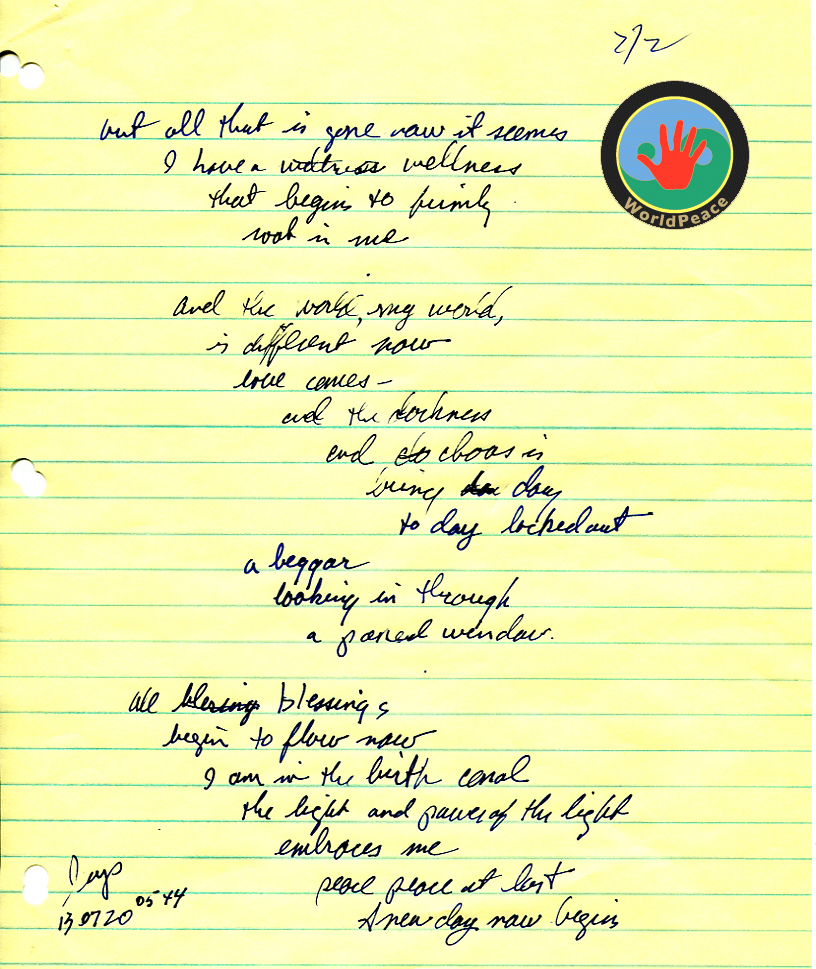 2/2
but all that is gone now it seems
I have a wellness
that begins to firmly
root in me
WorldPeace
and the world, my world,
is different now
love comes –
and the darkness
and chaos is
being day
to day locked out
a beggar
looking in through
a paned window.
all blessings
begin to flow now
I am in the birth canal
the light and power of the light
embraces me
peace peace at last
A new day now begins
0544
130720